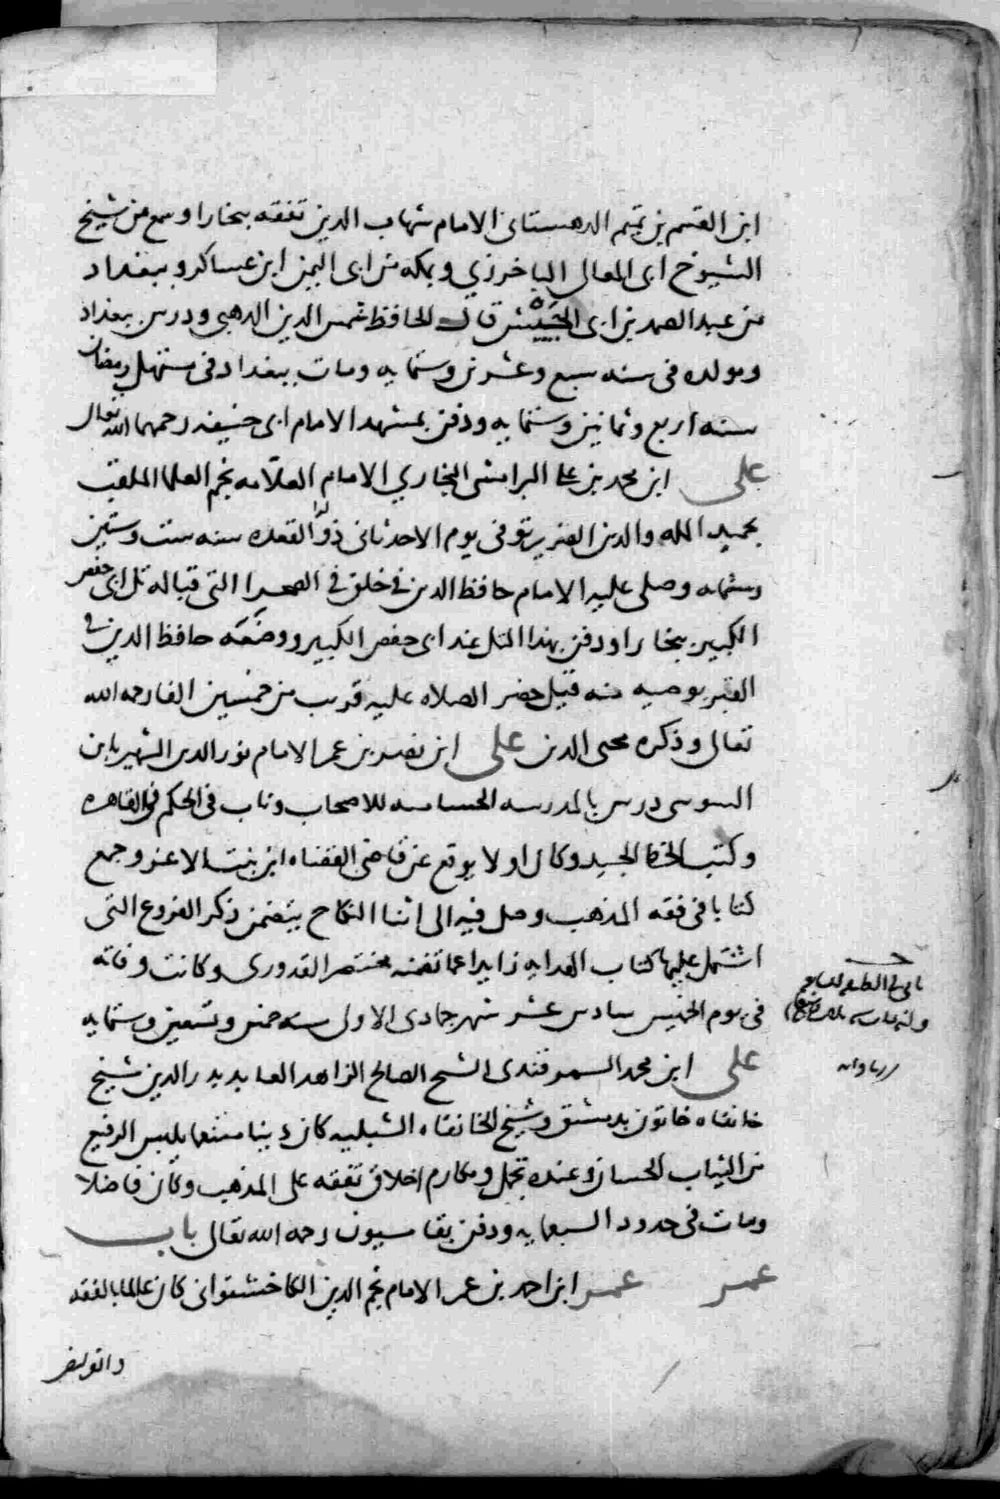 ابن القسم بن تميم الدهستانى الامام شهاب الدين تفقه ببخارا وسمع من شيخ
الشيوخ ابى المعالى الباخرزي وبمكه من ابى اليمن ابن عساكر وببغداد
من عبد الصمد بن ابى الجَيْش قال الحافظ شمس الدين الذهبى ودرس ببغداد
ومولده فى سنه سبع وعشرين وستمايه ومات ببغداد فى مستهل رمضان
سنه اربع وثمانين وستمايه ودفن بمشهد الامام ابى حنيفه رحمهما الله تعالى
على ابن محمد بن على الرامشى البخاري الامام العلامه نجم العلما الملقب
بحميد المله والدين الضرير توفى يوم الاحد ثانى ذو القعده سنه ست وستين
وستمايه وصلى عليه الامام حافظ الدين فى خلق فى الصحرا التى قباله تل ابى حفص
الكبير ببخارا ودفن بهذا التل عند ابى حفص الكبير ووضعه حافظ الدين فى
القبر بوصيه منه قيل حضر الصلاه عليه قريب من خمسين الفا رحمه الله
تعالى وذكره محى الدين على ابن نصر بن عمر الامام نور الدين الشهير بابن
السوسى درس بالمدرسه الحساميه للاصحاب وناب فى الحكم فى القاهره
وكتب الخط الجيد وكان اولا يوقع عن قاضى القضاه ابن بنت الاعز وجمع
كتابا فى فقه المذهب وصل فيه الى اثنا النكاح يتضمن ذكر الفروع التى
اشتمل عليها كتاب الهدايه زايدا عما تضمنه مختصر القدورى وكانت وفاته
فى يوم الخميس سادس عشر شهر جمادى الاولى سنه خمس وتسعين وستمايه
على ابن محمد السمرقندى الشيخ الصالح الزاهد العابد بدر الدين شيخ
خانقاه خاتون بدمشق وشيخ الخانقاه الشبليه كان دينا متنعما يلبس الرفيع
من الثياب الحسان وعنده تجمل ومكارم اخلاق تفقه على المذهب وكان فاضلا
ومات فى حدود السبعمايه ودفن بقاسيون رحمه الله تعالى باب
عمر عمر ابن احمد بن عمر الامام نجم الدين الكاخشتوانى كان عالما بالفقه